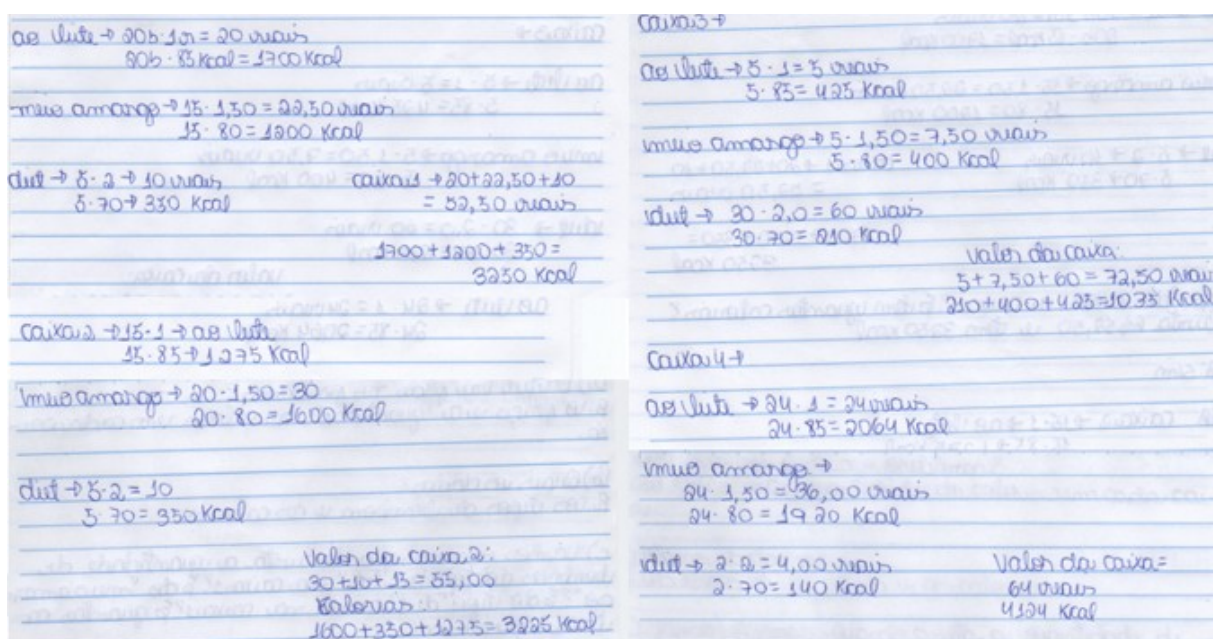 ao leite → 20b · 1r = 20 reais
20b · 85 Kcal = 1700 Kcal
meio amargo → 15 · 1,50 = 22,50 reais
15 · 80 = 1200 Kcal
diet → 5 · 2 → 10 reais
5 · 70 → 350 Kcal
caixa 1 → 20+22,50+10
= 52,50 reais
1700+1200+350=
3250 Kcal
caixa 2 → 15 · 1 → ao leite
15 · 85 → 1275 Kcal
meio amargo → 20 · 1,50 = 30
20 · 80 = 1600 Kcal
diet → 5 · 2 = 10
5 · 70 = 350 Kcal
Valor da caixa 2:
30+10+15=55,00
Kalorias:
1600+350+1275= 3225 Kcal
caixa 3 →
ao leite → 5 · 1 = 5 reais
5 · 85 = 425 Kcal
meio amargo → 5 · 1,50 = 7,50 reais
5 · 80 = 400 Kcal
diet → 30 · 2,0 = 60 reais
30 · 70 = 210 Kcal
Valor da caixa:
5+7,50+60 = 72,50 reai
210+400+425=1035 Kcal
Caixa 4 →
ao leite → 24 · 1 = 24 reais
24 · 85 = 2064 Kcal
meio amargo →
24 · 1,50 = 36,00 reais
24 · 80 = 1920 Kcal
diet → 2 · 2 = 4,00 reais
2 · 70 = 140 Kcal
Valor da caixa=
64 reais
4124 Kcal